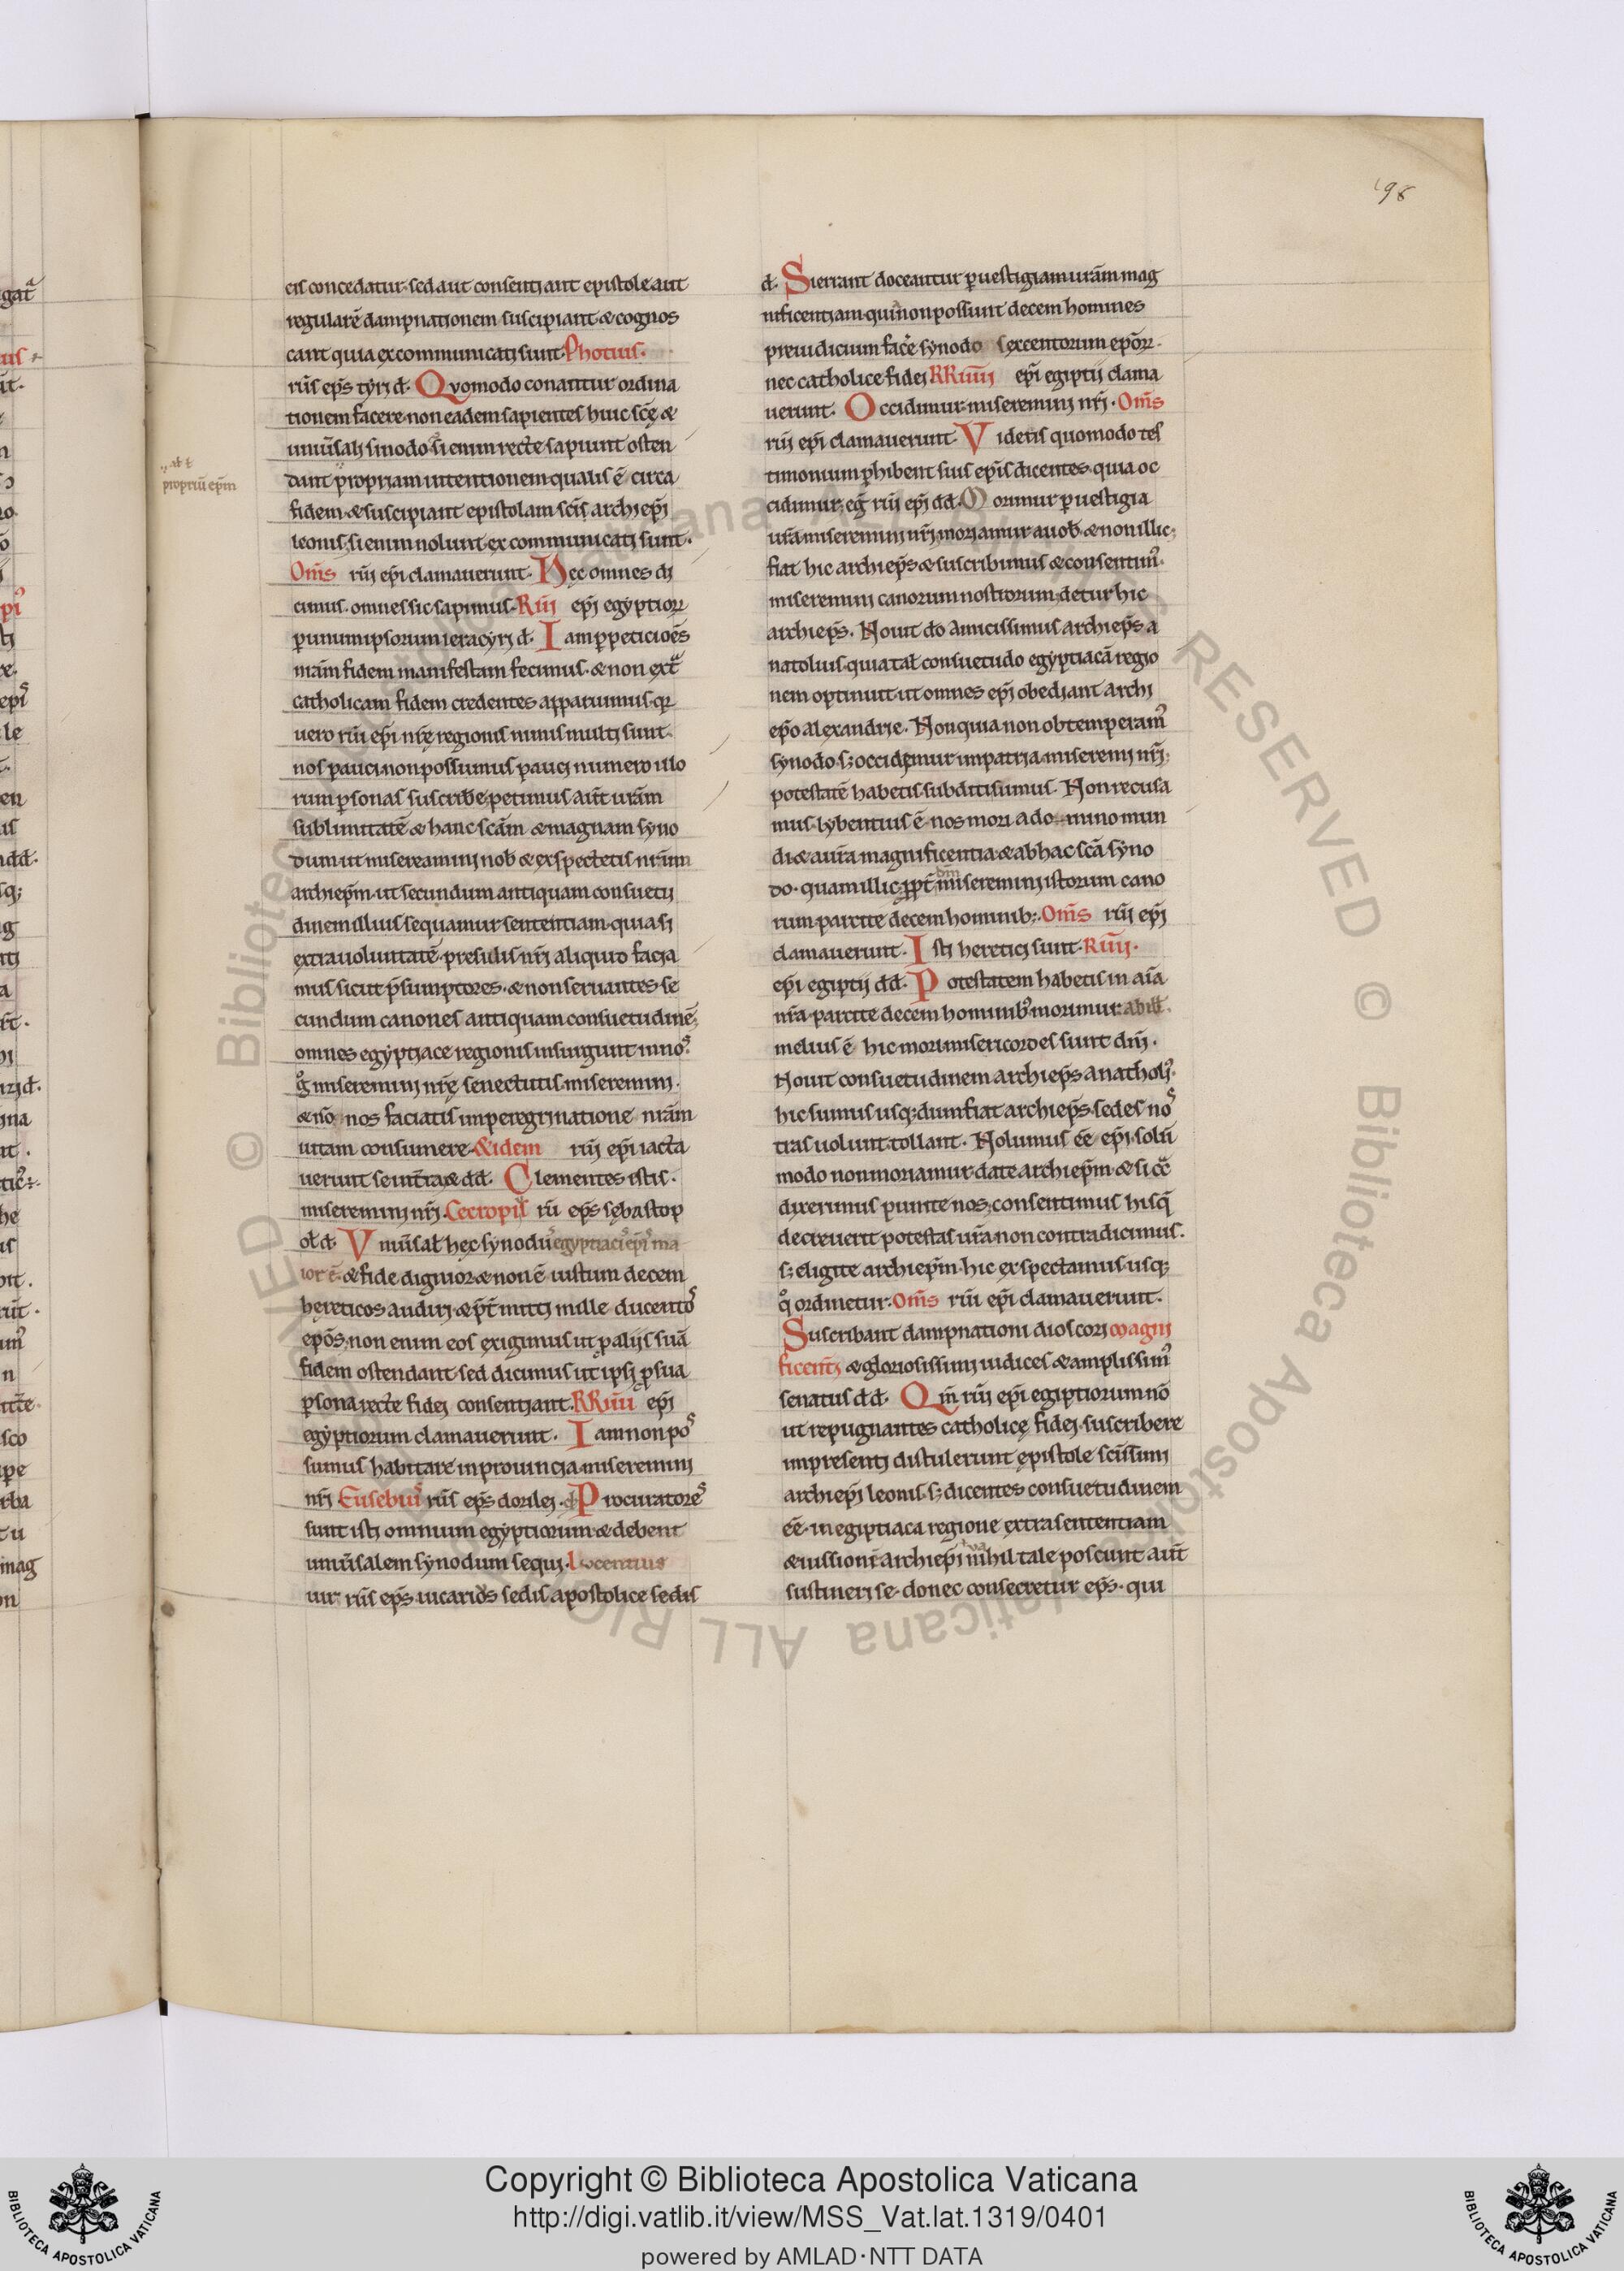 198
cis concedatur. sed aut consentiant epistole aut
regularē dampnationem suscipiant & cognos
cant quia excommunicati sunt. Photius.
rūs ep̄s tyri d̄. Quomodo conantur ordina
tionem facere. non eadem sapientes huic scē &
uniūsali sinodo. si enim recte sapiunt osten
dant propriam intentionem qualis ē circa
fidem. & suscipiant epistolam scīs. archiep̄i
leonis. si enim nolunt. excommunicati sunt.
Om̄s rūi ep̄i clamauerunt. Hec omnes di
cimus. omnes sic sapimus. Rūi ep̄i egyptioꝝ
ꝑ unum ipsorum ieracyri d̄. Iam ꝑ peticiōes
nr̄am fidem manifestam fecimus. & non ext̄
catholicam fidem credentes apparuimus. q̄
uero rūi ep̄i nr̄e regionis nimis multi sunt.
nos pauci. non possumus pauci numero illo
rum ꝑsonas suscribe. petimus aūt ur̄am
sublimitatē & hanc scām & magnam syno
dum ut misereamini nob̄ & exspectetis nr̄um
archiep̄m. ut secundum antiquam consuetu
dinem illius sequamur sententiam. quia si
extra uoluntatē presulis nr̄i aliquid facia
mus sicut p̄sumptores. & non seruantes se
cundum canones antiquam consuetudinē.
omnes egyptiace regionis insurgunt in nos.
g̊ miseremini nr̄e senectutis. miseremini.
& nō nos faciatis in peregrinatione nr̄am
uitam consumere. & idem rūi ep̄i iacta
uerunt se int̄ra & dd̄. Clementes istis.
miseremini nr̄i. Cecropiꝰ rū ep̄s sebastop
ol̄ d̄. Vniūsal̄ hec synodꝰ egyptiaci ep̄i ma
ior ē. & fide dignior. & non ē iustum decem
hereticos audiri. & p̄t mitti mille ducentos
ep̄os. non enim eos exigimus ut ꝑ alijs suā
fidem ostendant. sed dicimus ut ipsi ꝑ sua
ꝑsona recte fidei consentiant. RRūii ep̄i
egyptiorum clamauerunt. Iam non pos
sumus habitare in prouincia. miseremini
nr̄i. Eusebius rūs ep̄s dorilei. d̄. Procuratores
sunt isti omnium egyptiorum. & debent
uniūsalem synodum sequi. Lucentius
uir rūs ep̄s uicarius sedis apostolice sedis
al̄ ł
propriū ep̄m
d̄. Si errant doceantur ꝑ uestigiam ur̄am mag
nificentiam. quia non possunt decem homines
preiudicium facē synodo sexcentorum ep̄oꝝ.
nec catholice fidei. RRūii ep̄i egiptij clama
uerunt. Occidimur. miseremini nr̄i. Om̄s
rūi ep̄i clamauerunt. Videtis quomodo tes
timonium ꝑhibent suis ep̄is dicentes. quia oc
cidimur. eg̅ rūi ep̄i dd̄. Morimur ꝑ uestigia
ur̄a miseremini nr̄i. moriamur a uob̄. & non illic.
fiat hic archiep̄s & suscribimus & consentimꝰ.
miseremini canorum nostrorum. detur hic
archiep̄s. Nouit do amicissimus archiep̄s a
natolius. quia tal̄ consuetudo egyptiacā regio
nem optinuit ut omnes ep̄i obediant archi
ep̄o alexandrie. Non quia non obtemperamꝰ
synodo. s; occidemur in patria. miseremi nr̄i.
potestatē habetis. subditi sumus. Non recusa
mus. lybentius ē nos mori a domino mun
di & a ur̄a magnificentia. & ab hac scā syno
do. quam illic. ꝓpt̄ dm̄ miseremini istorum cano
rum. parcite decem hominib;. Om̄s rūi ep̄i
clamauerunt. Isti heretici sunt. Rūii.
ep̄i egiptij dd̄. Potestatem habetis in aīa
nr̄a. parcite decem hominibꝰ. morimur.
melius ē hic mori. misericordes sunt dn̄i.
Nouit consuetudinem archiep̄s anatholiꝰ.
hic sumus usq; dum fiat archiep̄s. sedes nos
tras uolunt. tollant. Nolumus ēe ep̄i. solū
modo non moriamur. date archiep̄m. & si cō
dixerimus punite nos. consentimus hisq̄
decreuerit potestas ur̄a. non contradicimus.
s; eligite archiep̄m. hic exspectamus. usq;
q̊ ordinetur. Om̄s rūi ep̄i clamauerunt.
Suscribant dampnationi dioscori. Magni
ficent̄i & gloriosissimi iudices & amplissimꝰ
senatus dd̄. Qm̄ rūi ep̄i egiptiorum nō
ut repugnantes catholice fidei suscribere
in presenti distulerunt epistole scīssimi
archiep̄i leonis. s; dicentes consuetudinem
ēe. in egiptiaca regione extra sententiam
& iussionē archiep̄i nihil tale poscunt aūt
sustineri se. donec consecretur ep̄s. qui
© Biblioteca Apostolica Vaticana ALL RIGHTS RESERVED
Copyright © Biblioteca Apostolica Vaticana
http://digi.vatlib.it/view/MSS_Vat.lat.1319/0401
powered by AMLAD·NTT DATA
BIBLIOTECA APOSTOLICA VATICANA
BIBLIOTECA APOSTOLICA VATICANA